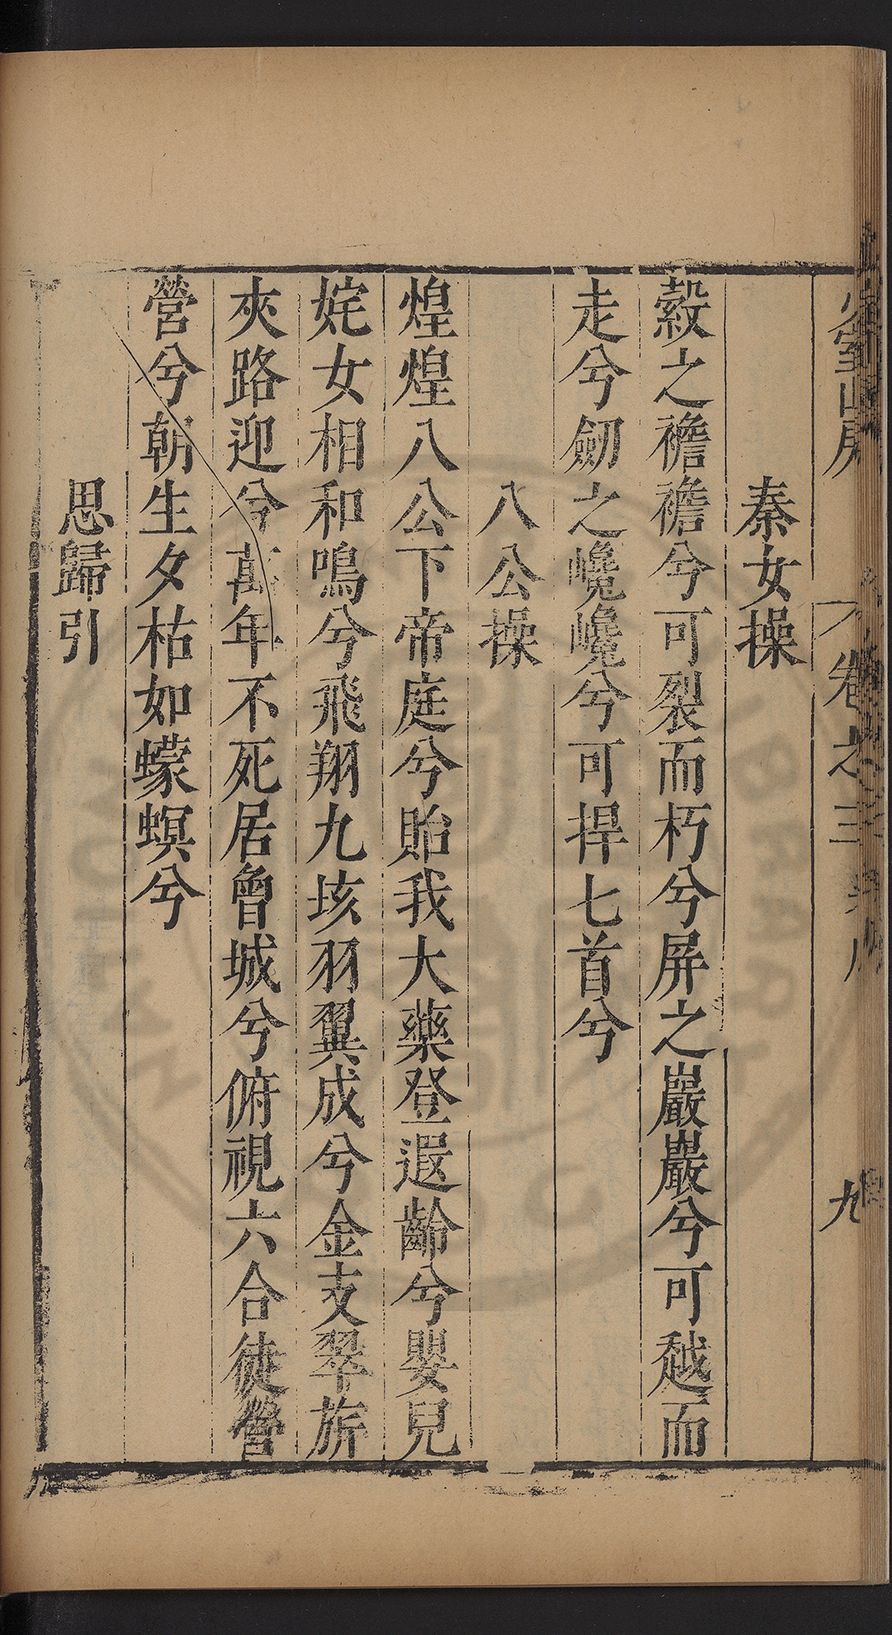 秦女操
縠之襜襜兮可裂而朽兮屏之巖巖兮可越而
走兮劒之巉巉兮可捍七首兮
八公操
煌煌八公下帝庭兮貽我大藥登遐齡兮嬰兒
姹女相和鳴兮飛翔九垓羽翼成兮金支翠旂
夾路迎兮萬年不死居曾城兮俯視六合徒營
營兮朝生夕枯如蠓螟兮
思歸引
卷之三
九